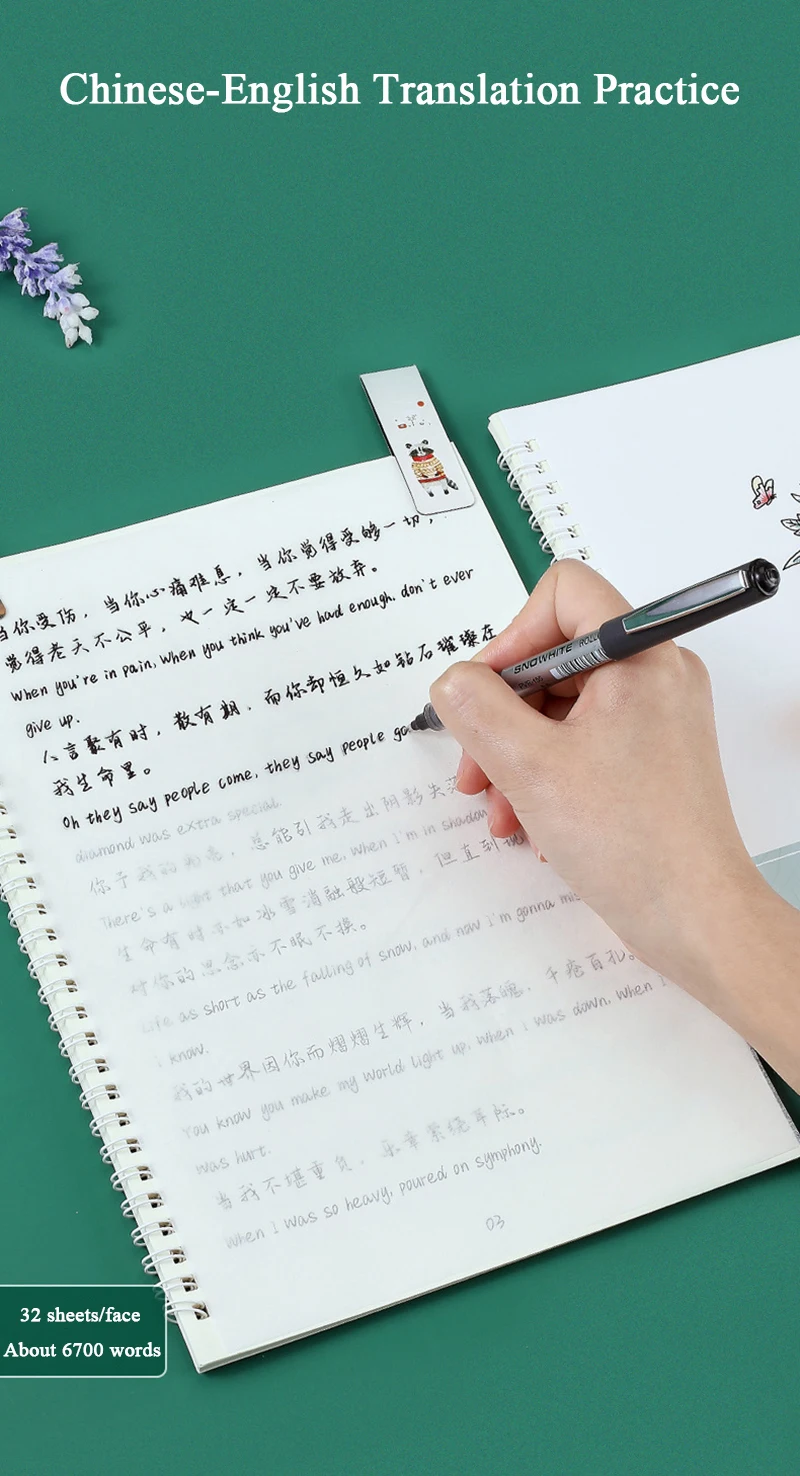 Chinese-English Translation Practice
当你受伤，当你心痛难息，当你觉得受够一切，
觉得老天不公平，也一定一定不要放弃。
When you're in pain, when you think you've had enough, don't ever
give up.
人言聚有时，散有期，而你却恒久如钻石璀璨在
我生命里。
Oh they say people come, they say people go
diamond was extra special.
你予我的光亮，总能引我走出阴影失落
There's a light that you give me, when I'm in shadow
生命有时亦如冰雪消融般短暂，但直到现
对你的思念亦不眠不揍。
Life as short as the falling of snow, and now I'm gonna miss
I know.
我的世界因你而熠熠生辉，当我落魄，千疮百孔。
You know you make my world light up, when I was down, when I
was hurt.
当我不堪重负，乐章萦绕耳际。
When I was so heavy, poured on symphony.
03
SNOWHITE ROLL
32 sheets/face
About 6700 words